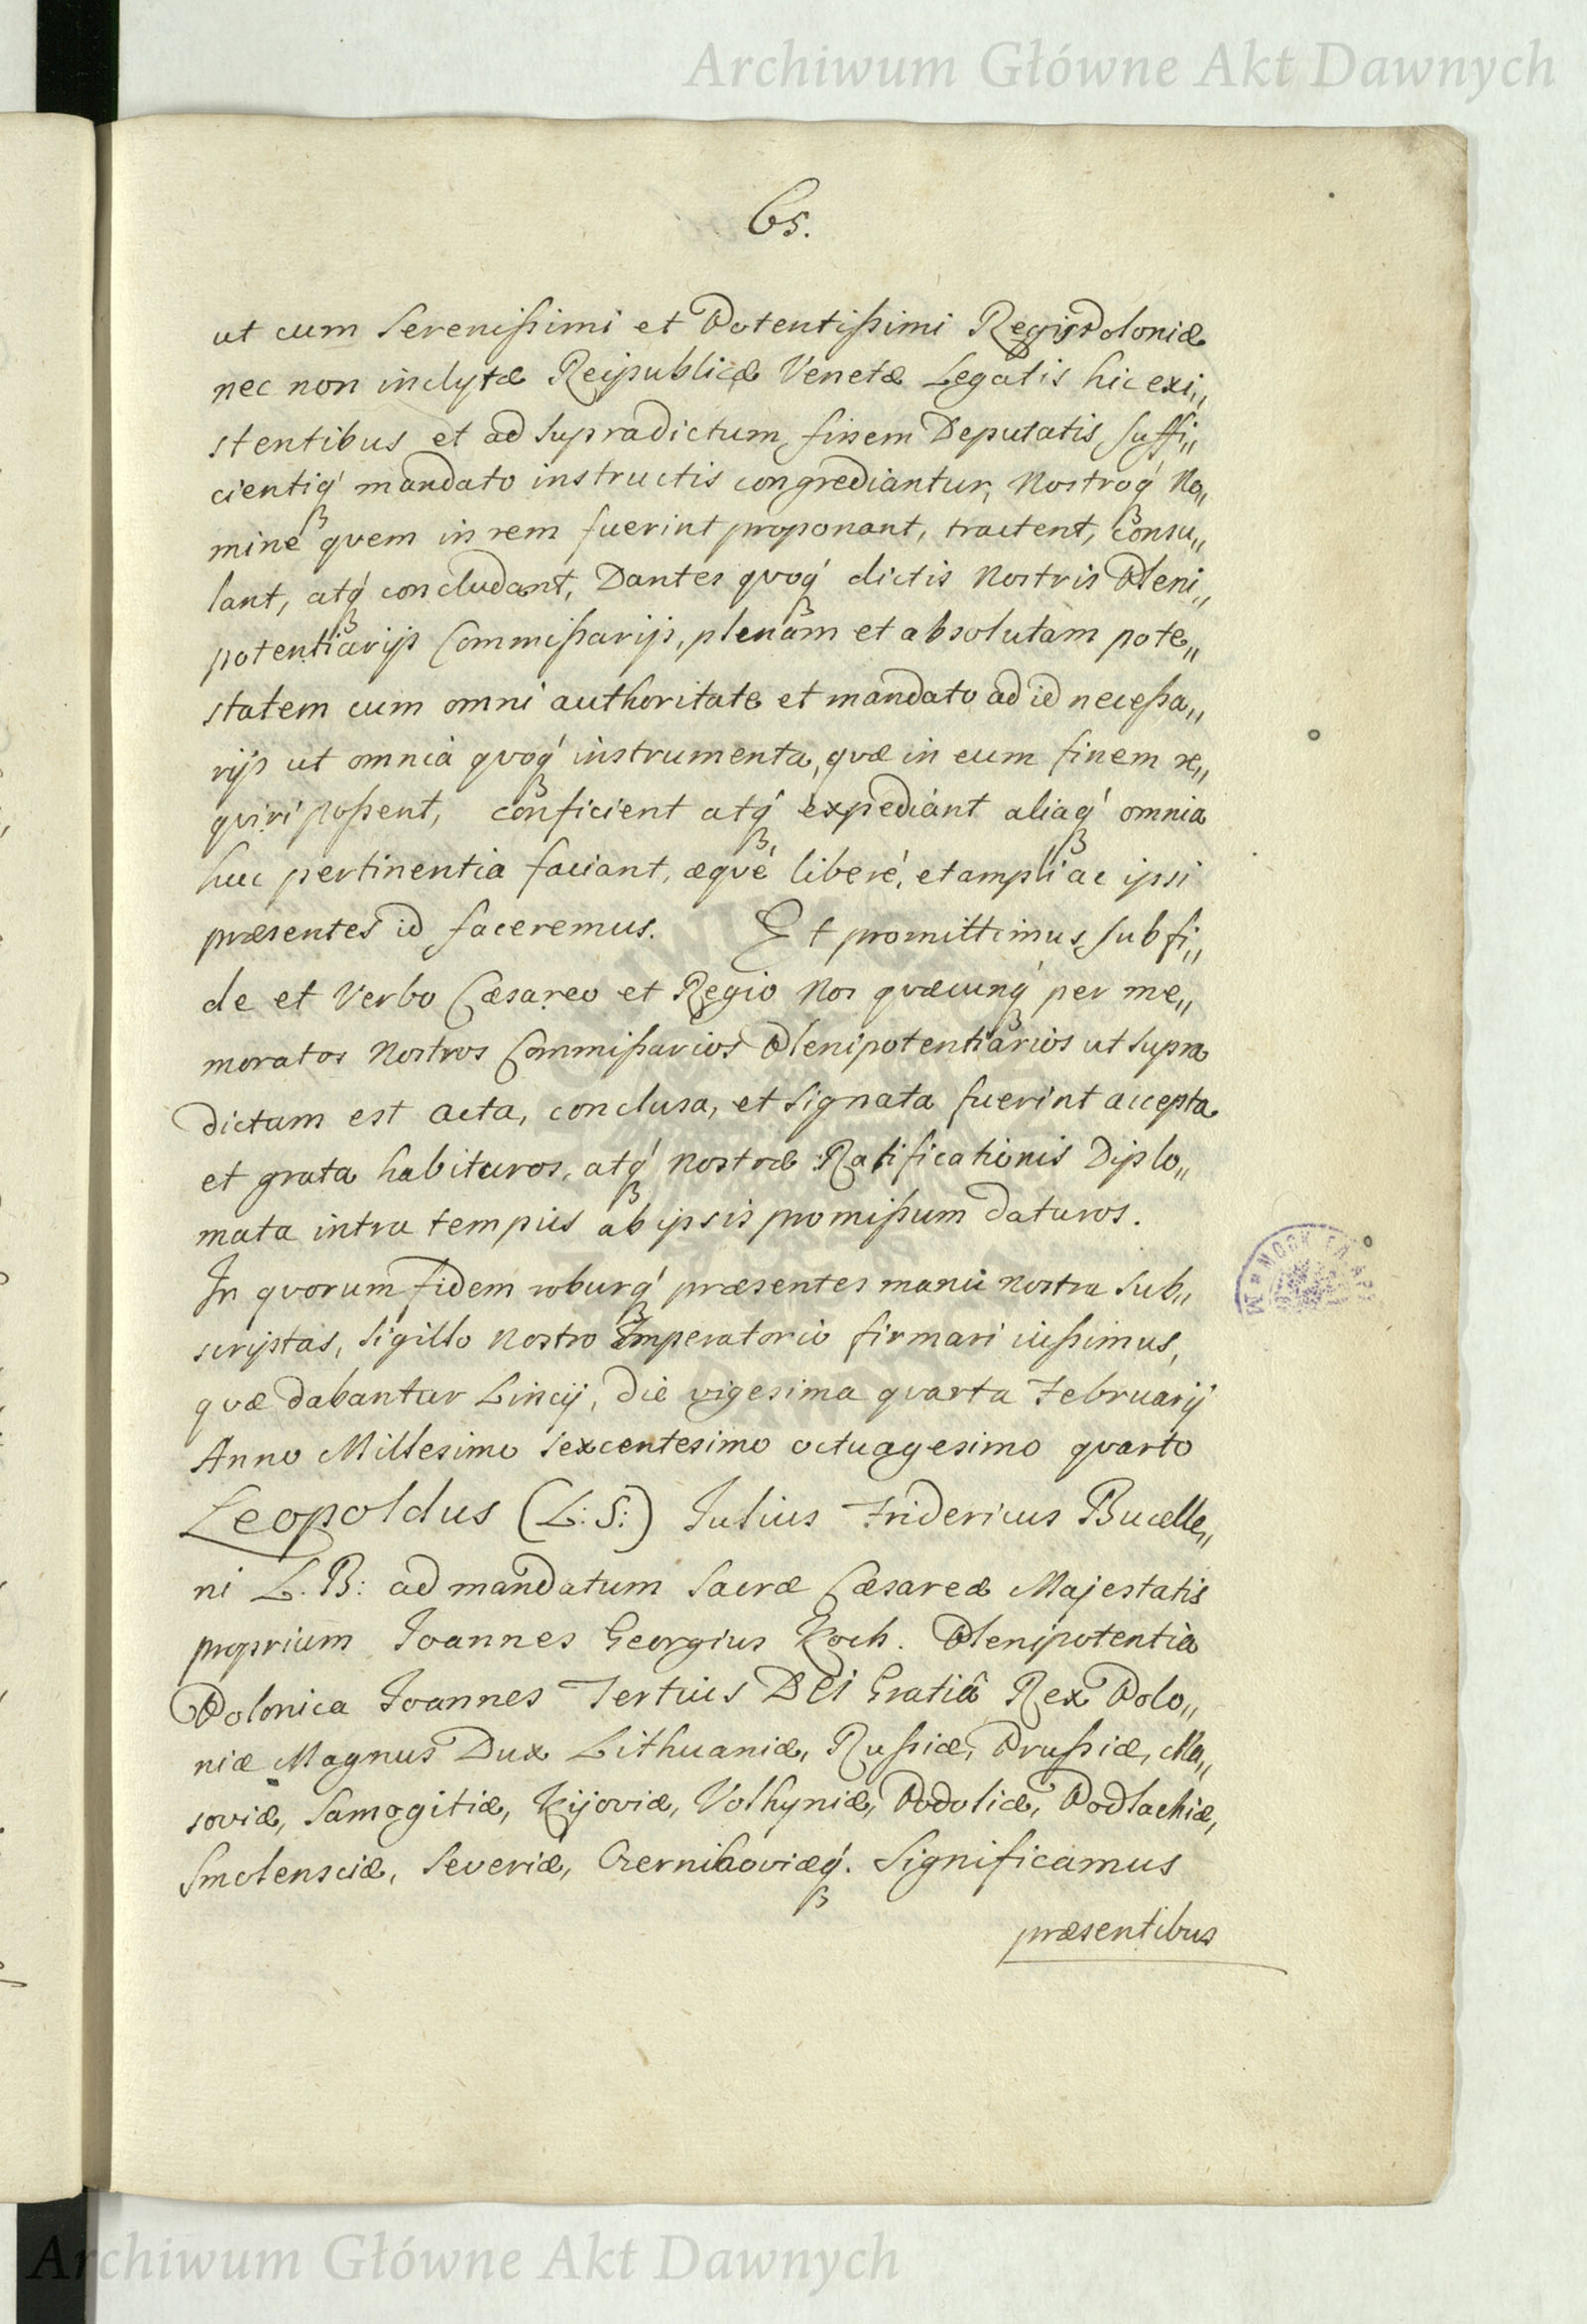 Archiwum Główne Akt Dawnych
65.
ut cum Serenißimi et Potentißimi Regis Poloniæ
nec non inclytæ Reipublicæ Venetæ Legatis hic exi„
stentibus et ad supradictum finem Deputatis, suffi„
cientiq́ mandato instructis congrediantur, Nostroq́ No„
mine quem in rem fuerint proponant, tractent, consu„
lant, atq́ concludant, Dantes quoq́ dictis Nostris Pleni„
potentiarijs Commißarijs, plenam et absolutam pote„
statem cum omni authoritate et mandato ad id neceßa„
rijs ut omnia quoq́ instrumenta, quæ in eum finem re„
quiri poßent, conficient atq́ expediant aliaq́ omnia
huc pertinentia faciant, æquè liberè, et ampli ac ipsi
præsentes id faceremus. Et promittimus, sub fi„
de et Verbo Cæsareo et Regio Nos quæcunq́ per me„
moratos Nostros Commißarios Plenipotentiarios ut supra
dictum est acta, conclusa, et signata fuerint accepta
et grata habituros, atq́ Nostræ Ratificationis Diplo„
mata intra tempus ab ipsis promißum daturos.
In quorum fidem roburq́ præsentes manu nostra sub„
scriptas, Sigillo Nostro Imperatorio firmari iußimus,
quæ dabantur Lincij, die vigesima quarta Februarij
Anno Millesimo sexcentesimo octuagesimo quarto
Leopoldus (L: S:) Julius Fridericus Bucelle„
ni L. B: ad mandatum Sacræ Cæsareæ Majestatis
proprium Joannes Georgius Koch. Plenipotentia
Polonica Joannes Tertius DEI Gratiâ Rex Polo„
niæ Magnus Dux Lithuaniæ, Rußiæ, Prußiæ, Ma„
soviæ, Samogitiæ, Kijoviæ, Volhyniæ, Podoliæ, Podlachiæ,
Smolensciæ, Severiæ, Czernihoviæq́. Significamus
præsentibus
Archiwum Główne Akt Dawnych